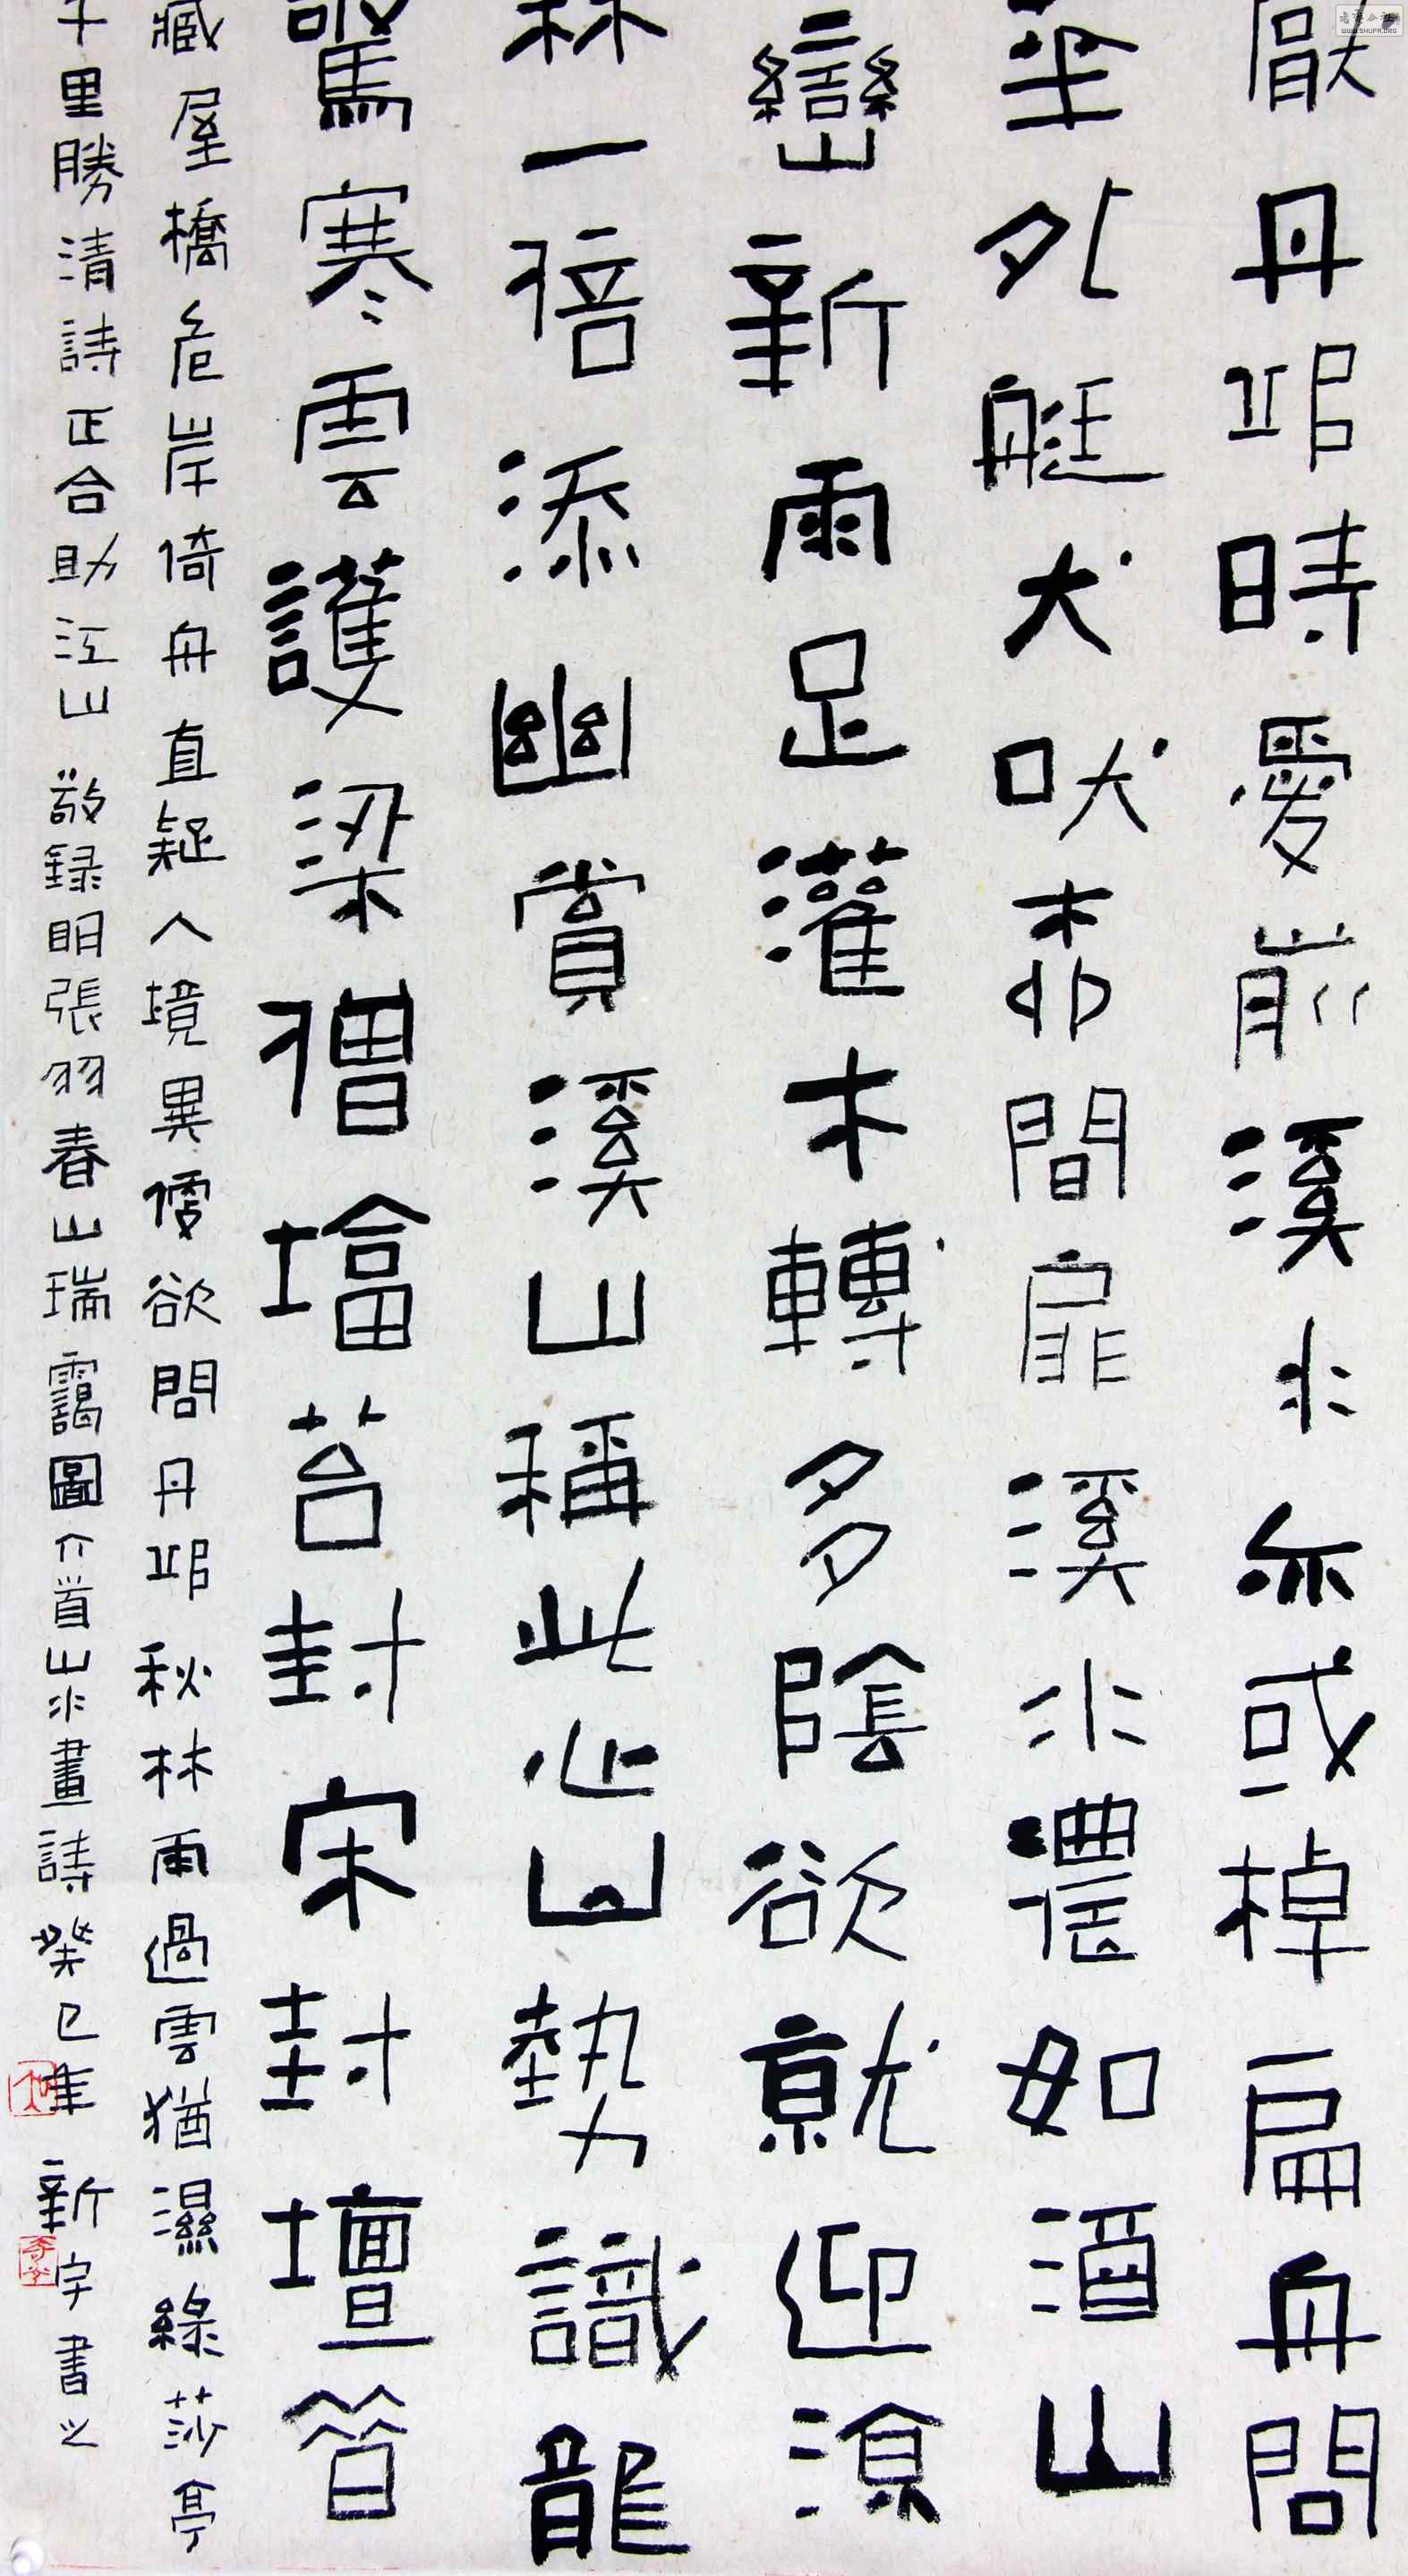 厭丹邱時愛前溪水亦或棹扁舟問
坐外艇犬吠林間扉溪水濃如酒山
巒新雨足灌木轉多陰欲就迎涼
林一倍添幽賞溪山稱此心山勢識龍
驚寒雲護梁僧塔苔封宋封壇簷
藏屋橋危岸倚舟直疑人境異便欲問丹邱秋林雨過雲猶濕綠莎亭
千里勝清詩正合助江山敬録明張羽春山瑞靄圖六首山水畫詩癸巳年新宇書之
WWW.SHUFA.ORG